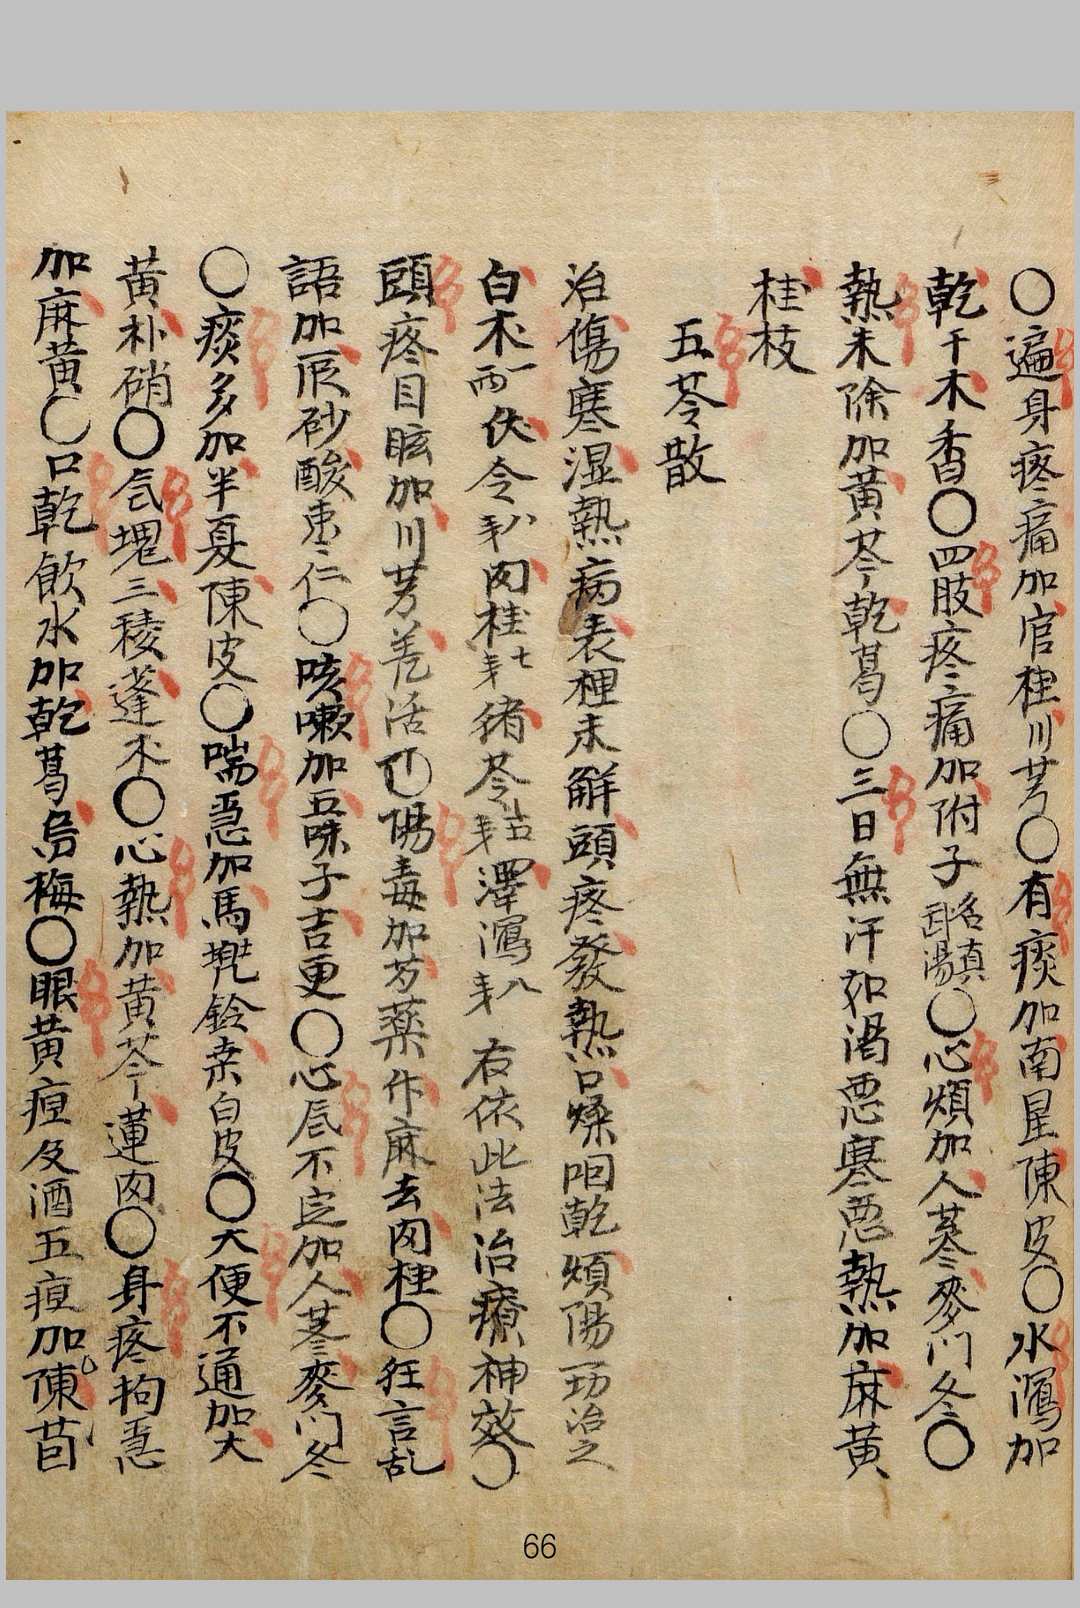 〇遍身疼痛加官桂川芎〇有痰加南星陳皮〇水瀉加
乾干木香〇四肢疼痛加附子名真武湯〇心煩加人参麥门冬〇
熱未除加黄芩乾葛〇三日無汗如渴惡寒惡熱加麻黄
桂枝
五苓散
治傷寒湿熱病表裡未觧頭疼發熱口燥咽乾煩陽一功治之
白朮一兩伏令八戔肉桂七戔猪苓戔澤瀉八戔右依此法治療神效〇
頭疼目眩加川芎羗活〇陽毒加芍薬作麻去肉桂〇狂言乱
語加辰砂酸枣仁〇咳嗽加五味子吉更〇心㤙不定加人参麥门冬
〇痰多加半夏陳皮〇喘急加馬兠鈴桒白皮〇大便不通加大
黄朴硝〇气塊三稜蓬朮〇心熱加黄芩蓮肉〇身疼拘急
加麻黄〇口乾飲水加乾葛烏梅〇眼黄疸及酒五疸加陳茵
66